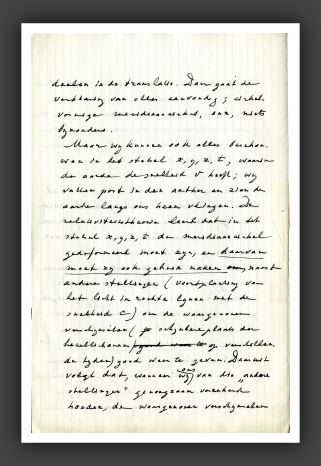 deelen in de translatie. Dan gaat de
verklaring van alles eenvoudig; cirkel-
vormige meridiaancirkel, enz, niets
bijzonders.
Maar wij kunnen ook alles beschou-
wen in het stelsel x, y, z, t, waarin
de aarde de snelheid v heeft; wij
vatten post in den aether en zien de
aarde langs ons heen vliegen. De
relativiteitstheorie leert dat in dit
stelsel x, y, z, t de meridiaancirkel
gedeformeerd moet zijn, en daarvan
moet zij ook gebruik maken naast
andere stellingen (voortplanting van
het licht in rechte lijnen met de
snelheid c) om de waargenomen
verschijnselen (schijnbare plaats der
hemellichamen op verschillen-
de tijden) goed weer te geven. Daaruit
volgt dat, wanneer wij ons van die "andere
stellingen" genoegzaam verzekerd
houden, de waargenomen verschijnselen